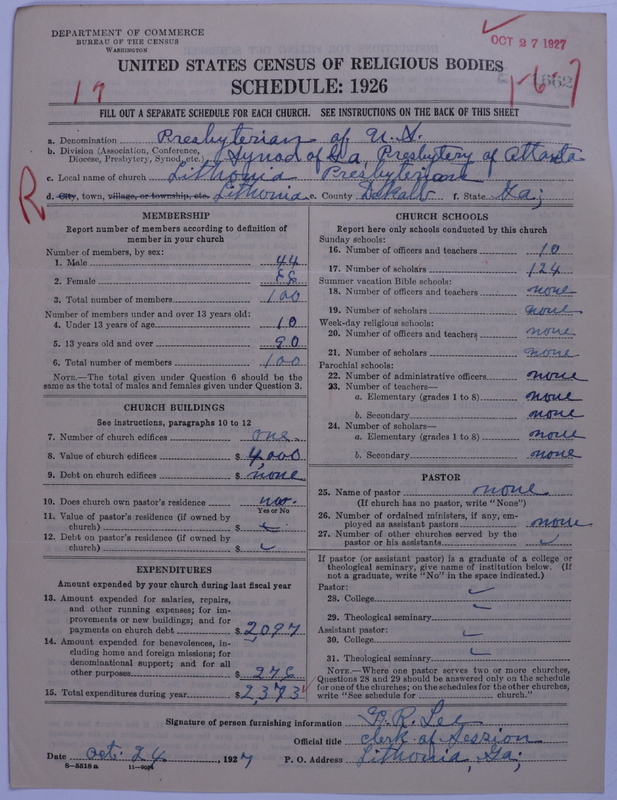 DEPARTMENT OF COMMERCE
BUREAU OF THE CENSUS
WASHINGTON
OCT 27 1927
UNITED STATES CENSUS OF RELIGIOUS BODIES
SCHEDULE: 1926
1-6-7
19
FILL OUT A SEPARATE SCHEDULE FOR EACH CHURCH. SEE INSTRUCTIONS ON THE BACK OF THIS SHEET
a. Denomination Presbyterian of U.S.
b. Division (Association, Conference, Diocese, Presbytery, Synod, etc.) Synod of Ga, Presbytery of Atlanta
c. Local name of church Lithonia Presbyterian
R
d. City, town, village, or township, etc. Lithonia e. County DeKalb f. State Ga;
MEMBERSHIP
Report number of members according to definition of
member in your church
Number of members, by sex:
1. Male 44
2. Female
3. Total number of members 100
Number of members under and over 13 years old:
4. Under 13 years of age 10
5. 13 years old and over 90
6. Total number of members 100
NOTE.—The total given under Question 6 should be the
same as the total of males and females given under Question 3.
CHURCH BUILDINGS
See instructions, paragraphs 10 to 12
7. Number of church edifices one
8. Value of church edifices $ 4,000
9. Debt on church edifices $ none
10. Does church own pastor's residence no
Yes or No
11. Value of pastor's residence (if owned by
church) $
12. Debt on pastor's residence (if owned by
church) $
EXPENDITURES
Amount expended by your church during last fiscal year
13. Amount expended for salaries, repairs,
and other running expenses; for im-
provements or new buildings; and for
payments on church debt $ 2,097
14. Amount expended for benevolences, in-
cluding home and foreign missions; for
denominational support; and for all
other purposes $ 276
15. Total expenditures during year $ 2,373
CHURCH SCHOOLS
Report here only schools conducted by this church
Sunday schools:
16. Number of officers and teachers 10
17. Number of scholars 124
Summer vacation Bible schools:
18. Number of officers and teachers none
19. Number of scholars none
Week-day religious schools:
20. Number of officers and teachers none
21. Number of scholars none
Parochial schools:
22. Number of administrative officers none
23. Number of teachers—
a. Elementary (grades 1 to 8) none
b. Secondary none
24. Number of scholars—
a. Elementary (grades 1 to 8) none
b. Secondary none
PASTOR
25. Name of pastor none
(If church has no pastor, write "None")
26. Number of ordained ministers, if any, em-
ployed as assistant pastors none
27. Number of other churches served by the
pastor or his assistants
If pastor (or assistant pastor) is a graduate of a college or
theological seminary, give name of institution below. (If
not a graduate, write "No" in the space indicated.)
Pastor:
28. College
29. Theological seminary
Assistant pastor:
30. College
31. Theological seminary
NOTE.—Where one pastor serves two or more churches,
Questions 28 and 29 should be answered only on the schedule
for one of the churches; on the schedules for the other churches,
write "See schedule for church."
Signature of person furnishing information R. Lee
Official title Clerk of Session
Date Oct. 24, 1927 P. O. Address Lithonia, Ga;
8—5518a